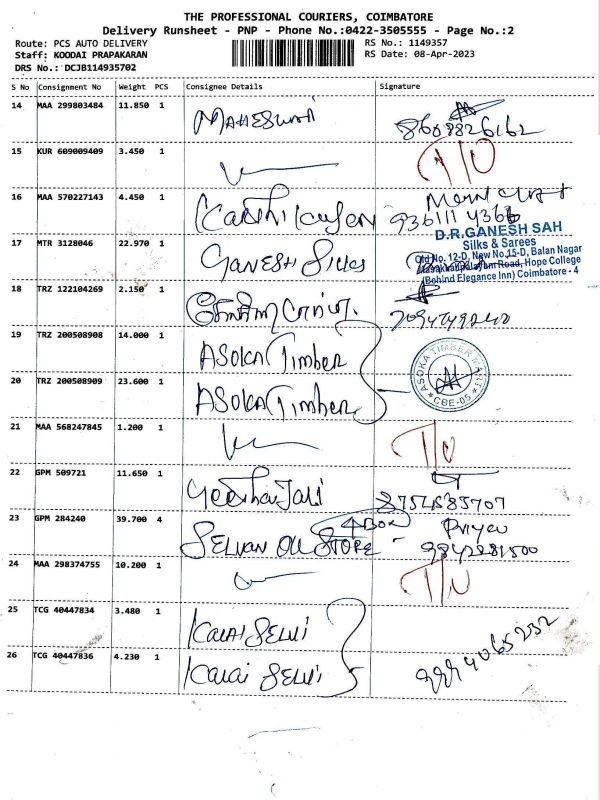 THE PROFESSIONAL COURIERS, COIMBATORE
Delivery Runsheet - PNP - Phone No.:0422-3505555 - Page No.:2
Route: PCS AUTO DELIVERY RS No.: 1149357
Staff: KOODAI PRAPAKARAN RS Date: 08-Apr-2023
DRS No.: DCJB114935702
S No Consignment No Weight PCS Consignee Details Signature
14 MAA 299803484 11.850 1 MAHESWARI
15 KUR 609009409 3.450 1 T/O
16 MAA 570227143 4.450 1
D.R.GANESH SAH
Silks & Sarees
17 MTR 3128046 22.970 1 GANESH Silks
Old No. 12-D, New No.15-D, Balan Nagar
Hope College
(Behind Elegance Inn) Coimbatore - 4
18 TRZ 122104269 2.150 1
19 TRZ 200508908 14.000 1 ASOKA Timber
ASOKA TIMBER MART
CBE-05
20 TRZ 200508909 23.600 1 ASOKA Timber
21 MAA 568247845 1.200 1 T/O
22 GPM 509721 11.650 1
23 GPM 284240 39.700 4 SELVAN OIL STORE - 4 BOX Priya
24 MAA 298374755 10.200 1 T/O
25 TCG 40447834 3.480 1 Kalai Selvi
26 TCG 40447836 4.230 1 Kalai Selvi